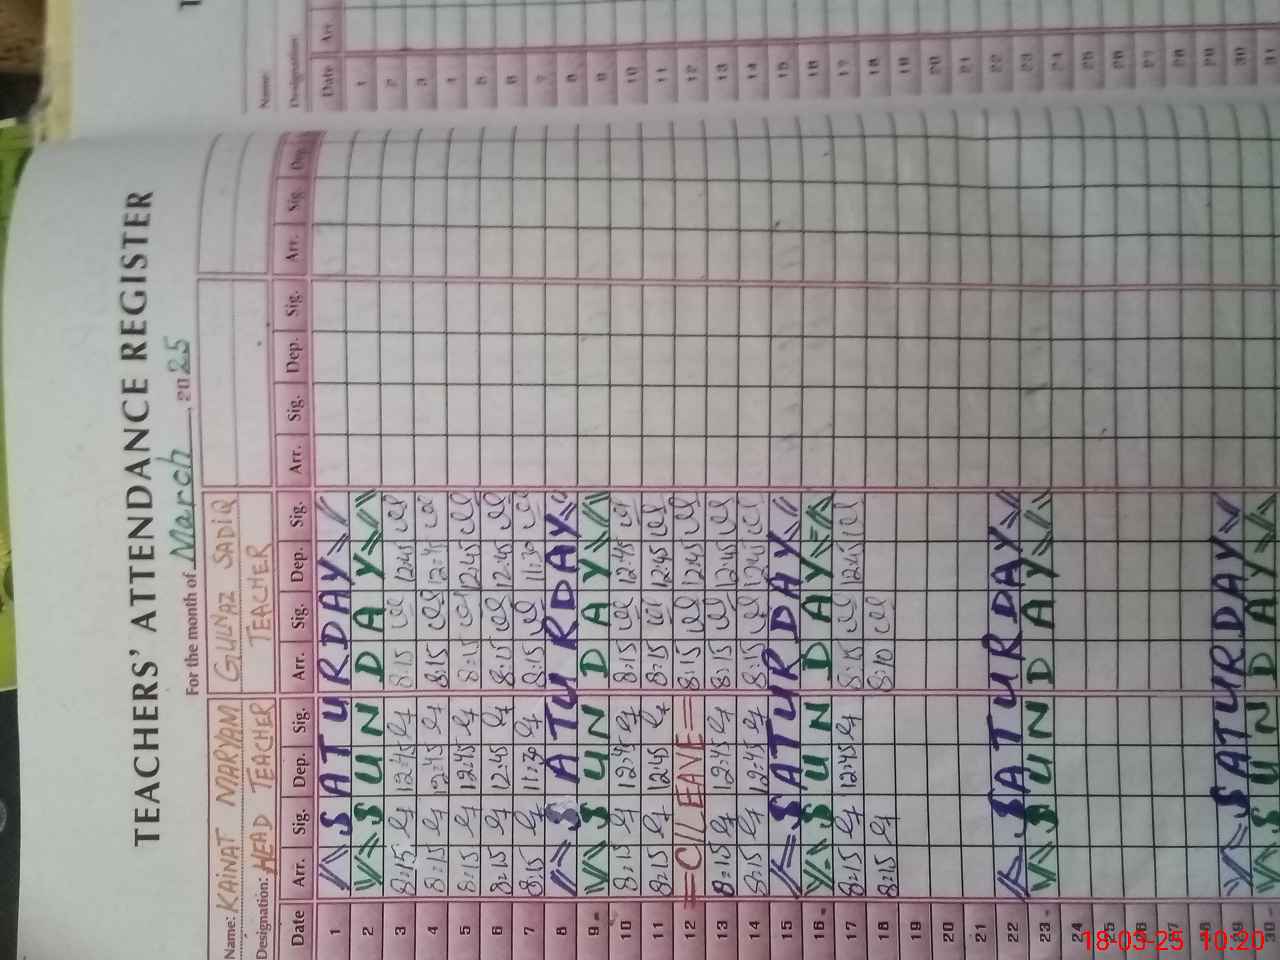 TEACHERS' ATTENDANCE REGISTER
For the month of March, 2025
Name: KAINAT MARYAM GULNAZ SADIQ
Designation: HEAD TEACHER TEACHER
Date Arr. Sig. Dep. Sig. Arr. Sig. Dep. Sig. Arr. Sig. Dep. Sig. Arr. Sig. Dep.
1 SATURDAY
2 SUNDAY
3 8:15 12:45 8:15 12:45
4 8:15 12:45 8:15 12:45
5 8:15 12:45 8:15 12:45
6 8:15 12:45 8:15 12:45
7 8:15 11:30 8:15 11:30
8 SATURDAY
9 SUNDAY
10 8:15 12:45 8:15 12:45
11 8:15 12:45 8:15 12:45
12 =C/LEAVE= 8:15 12:45
13 8:15 12:45 8:15 12:45
14 8:15 12:45 8:15 12:45
15 SATURDAY
16 SUNDAY
17 8:15 12:45 8:15 12:45
18 8:15 8:10
19
20
21
22 SATURDAY
23 SUNDAY
24
25
26
27
28
29 SATURDAY
30 SUNDAY
Name:
Designation:
Date Arr.
1
2
3
4
5
6
7
8
9
10
11
12
13
14
15
16
17
18
19
20
21
22
23
24
25
26
27
28
29
30
31
18-03-25 10:20